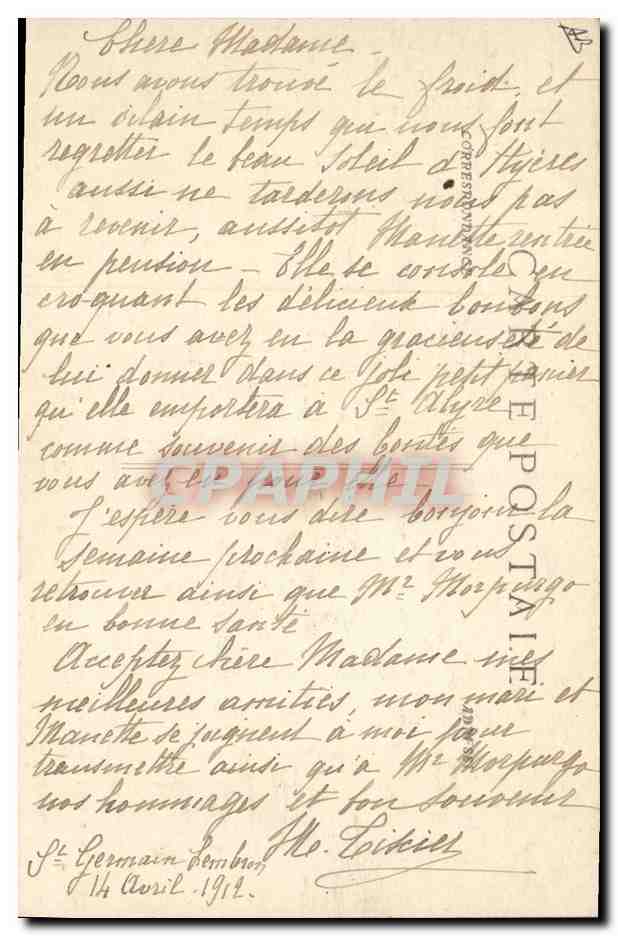 Chère Madame -
Nous avons trouvé le froid, et
un vilain temps qui nous font
regretter le beau soleil d'Hyères
aussi ne tarderons nous pas
à revenir, aussitot Manette rentrée
en pension - Elle se console en
croquant les délicieux bonbons
que vous avez eu la gracieuseté de
lui donner dans ce joli petit panier
qu'elle emportera à St Alyre
comme souvenir des bontés que
vous avez eu pour elle -
J'espère vous dire bonjour la
semaine prochaine et vous
retrouver ainsi que Mr Morpurgo
en bonne santé
Acceptez chère Madame mes
meilleures amitiés, mon mari et
Manette se joignent à moi pour
transmettre ainsi qu'à Mr Morpurgo
nos hommages et bon souvenir
M. Tixier
St Germain Lembron
14 Avril 1912.
CARTE POSTALE
CORRESPONDANCE
ADRESSE
CPAPHIL
AB